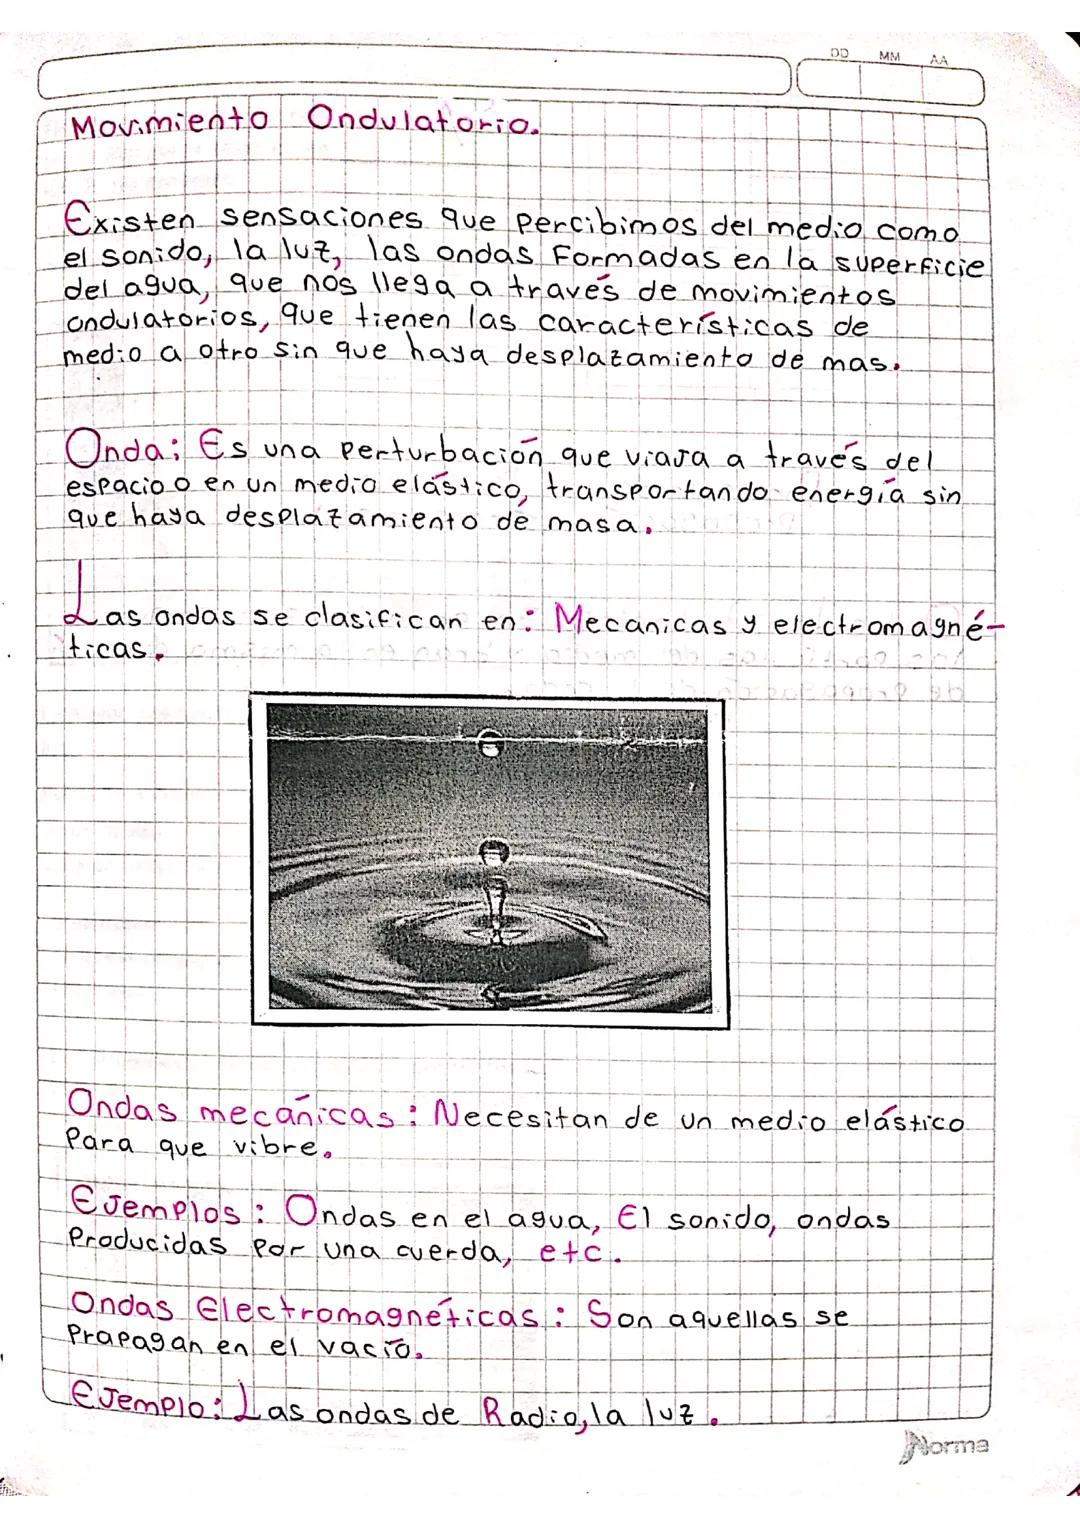 DD MM AA
Movimiento Ondulatorio.
Existen sensaciones que percibimos del medio como
el sonido, la luz, las ondas formadas en la superficie
del agua, que nos llega a través de movimientos
ondulatorios, que tienen las características de
medio a otro sin que haya desplazamiento de mas.
Onda: Es una perturbación que viaja a través del
espacio o en un medio elástico, transportando energía sin
que haya desplazamiento de masa.
Las ondas se clasifican en: Mecanicas y electromagné-
ticas.
Ondas mecánicas: Necesitan de un medio elástico
Para que vibre.
Ejemplos: Ondas en el agua, El sonido, ondas
Producidas por una cuerda, etc.
Ondas Electromagnéticas: Son aquellas se
Prapagan en el vacío.
Ejemplo: Las ondas de Radio, la luz.
Norma